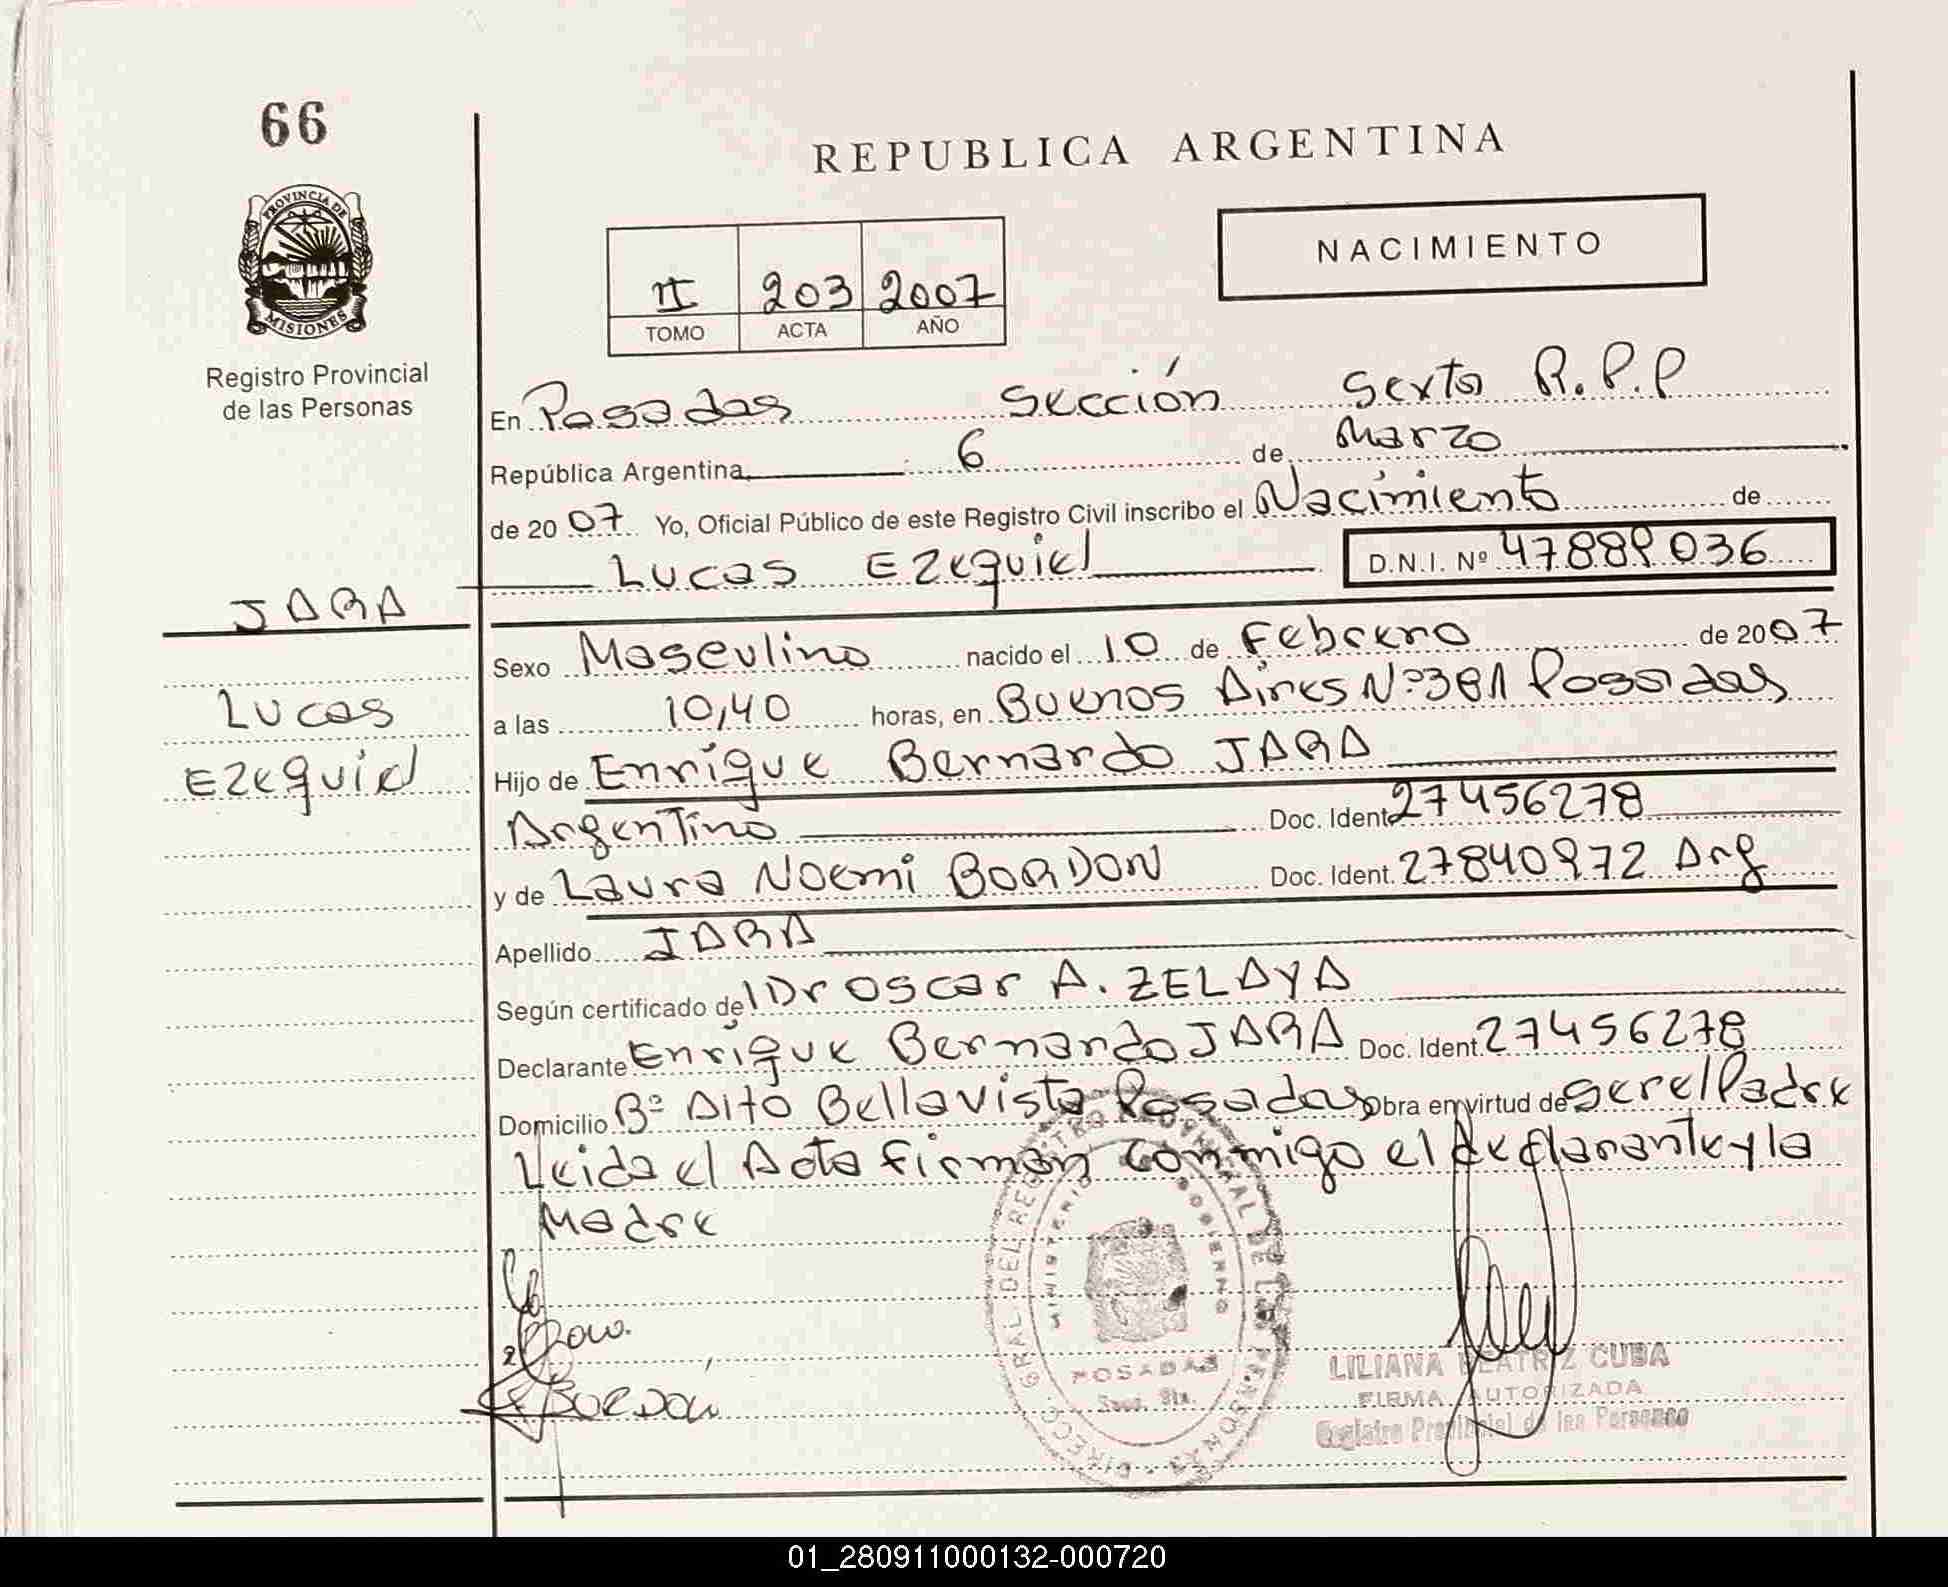 66
REPUBLICA ARGENTINA
PROVINCIA DE
MISIONES
NACIMIENTO
II 203 2007
TOMO ACTA AÑO
Registro Provincial
de las Personas
En Posadas Sección Sexta R.P.P
República Argentina, 6 de Marzo
de 2007 Yo, Oficial Público de este Registro Civil inscribo el Nacimiento de
Lucas Ezequiel D.N.I. Nº 47889036
JARA
Lucas
Ezequiel
Sexo Masculino nacido el 10 de Febrero de 2007
a las 10,40 horas, en Buenos Aires Nº381 Posadas
Hijo de Enrique Bernardo JARA
Argentino Doc. Ident 27456278
y de Laura Noemi BORDON Doc. Ident. 27840972 Arg
Apellido JARA
Según certificado del Dr OSCAR A. ZELAYA
Declarante Enrique Bernardo JARA Doc. Ident. 27456278
Domicilio Bº Alto Bellavista Posadas obra en virtud de ser el Padre
Leida el Acta firman conmigo el declarante y la
Madre
BORDON
DIRECC. GRAL. DEL REGISTRO PROVINCIAL DE LAS PERSONAS
MINISTERIO GOBIERNO
POSADAS
LILIANA BEATRIZ CUBA
FIRMA AUTORIZADA
Registro Provincial de las Personas
01_280911000132-000720